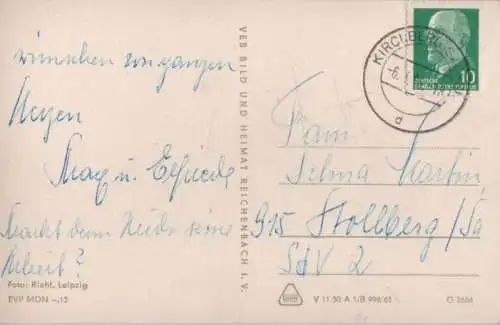 wünschen von ganzen
Herzen
Max u. Elfriede
Macht denn Heidi keine
Arbeit?
Foto: Riehl, Leipzig
EVP MDN -,15
VEB BILD UND HEIMAT REICHENBACH I. V.
KIRCHBERG
10
DEUTSCHE
DEMOKRATISCHE REPUBLIK
d
Fam.
Selma Martin
915 Stollberg/Sa
StV 2
V 11 50 A 1/B 996/65